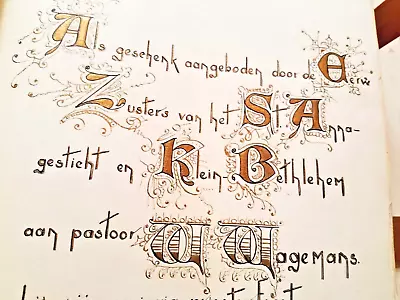 Als geschenk aangeboden door de Eerw
Zusters van het St. Anna-
gesticht en Klein-Bethlehem
aan pastoor W Wagemans.